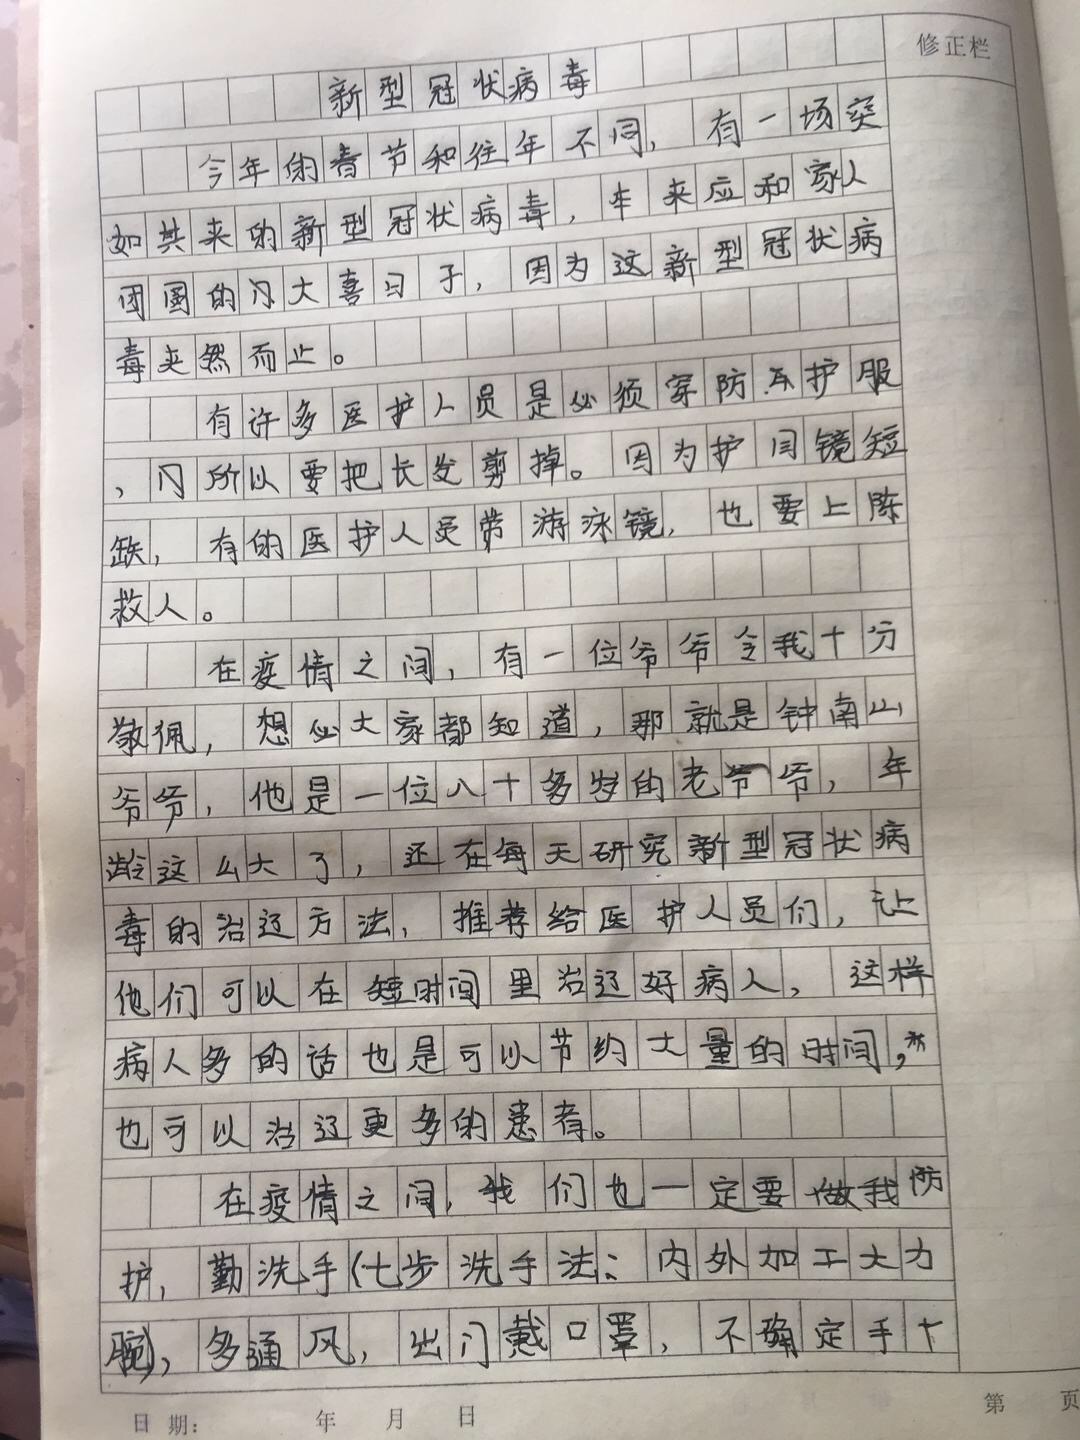 修正栏
新型冠状病毒
今年的春节和往年不同，有一场突
如其来的新型冠状病毒，本来应和家人
团圆的大喜日子，因为这新型冠状病
毒突然而止。
有许多医护人员是必须穿防护服
，所以要把长发剪掉。因为护目镜短
缺，有的医护人员带游泳镜，也要上阵
救人。
在疫情之间，有一位爷爷令我十分
敬佩，想必大家都知道，那就是钟南山
爷爷，他是一位八十多岁的老爷爷，年
龄这么大了，还在每天研究新型冠状病
毒的治辽方法，推荐给医护人员们，让
他们可以在短时间里治辽好病人，这样
病人多的话也是可以节约大量的时间，
也可以治辽更多的患者。
在疫情之间，我们也一定要做防
护，勤洗手(七步洗手法：内外加工大力
腕)，多通风，出门戴口罩，不确定手
日期： 年 月 日
第 页